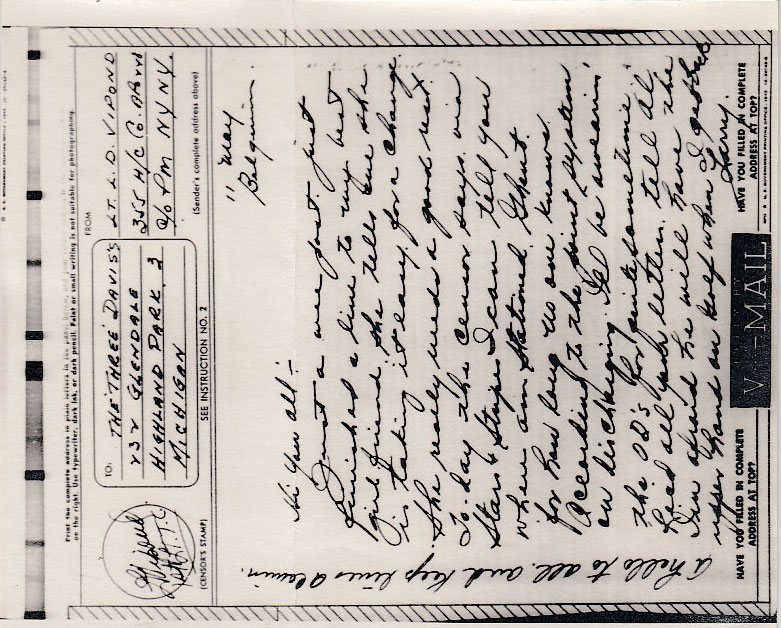 Print the complete address in plain letters in the panel below, and your return address in the space provided
on the right. Use typewriter, dark ink, or dark pencil. Faint or small writing is not suitable for photographing.
TO:
THE THREE DAVIS'S
232 GLENDALE
HIGHLAND PARK 3
MICHIGAN
FROM
LT. L. D. VIPOND
355 H/C Q.
c/o PM NY NY.
(Sender's complete address above)
(CENSOR'S STAMP)
SEE INSTRUCTION NO. 2
11 May
Belgium.
Hi You all:-
Just a wee
finished a line to my best
girl friend she tells me she
is taking it easy for a change
She really needs a good rest.
To-day the censor says via
Stars & Stripes I can tell you
where am stationed Ghent.
for how long no one knows.
According to the point system
on discharging I'll be
the OD's for quite sometime.
Read all your letter. tell Al
I'm afraid he will have the
upper hand on golf when I get back
Larry.
A hello to all and keep
HAVE YOU FILLED IN COMPLETE
ADDRESS AT TOP?
V···—MAIL
HAVE YOU FILLED IN COMPLETE
ADDRESS AT TOP?